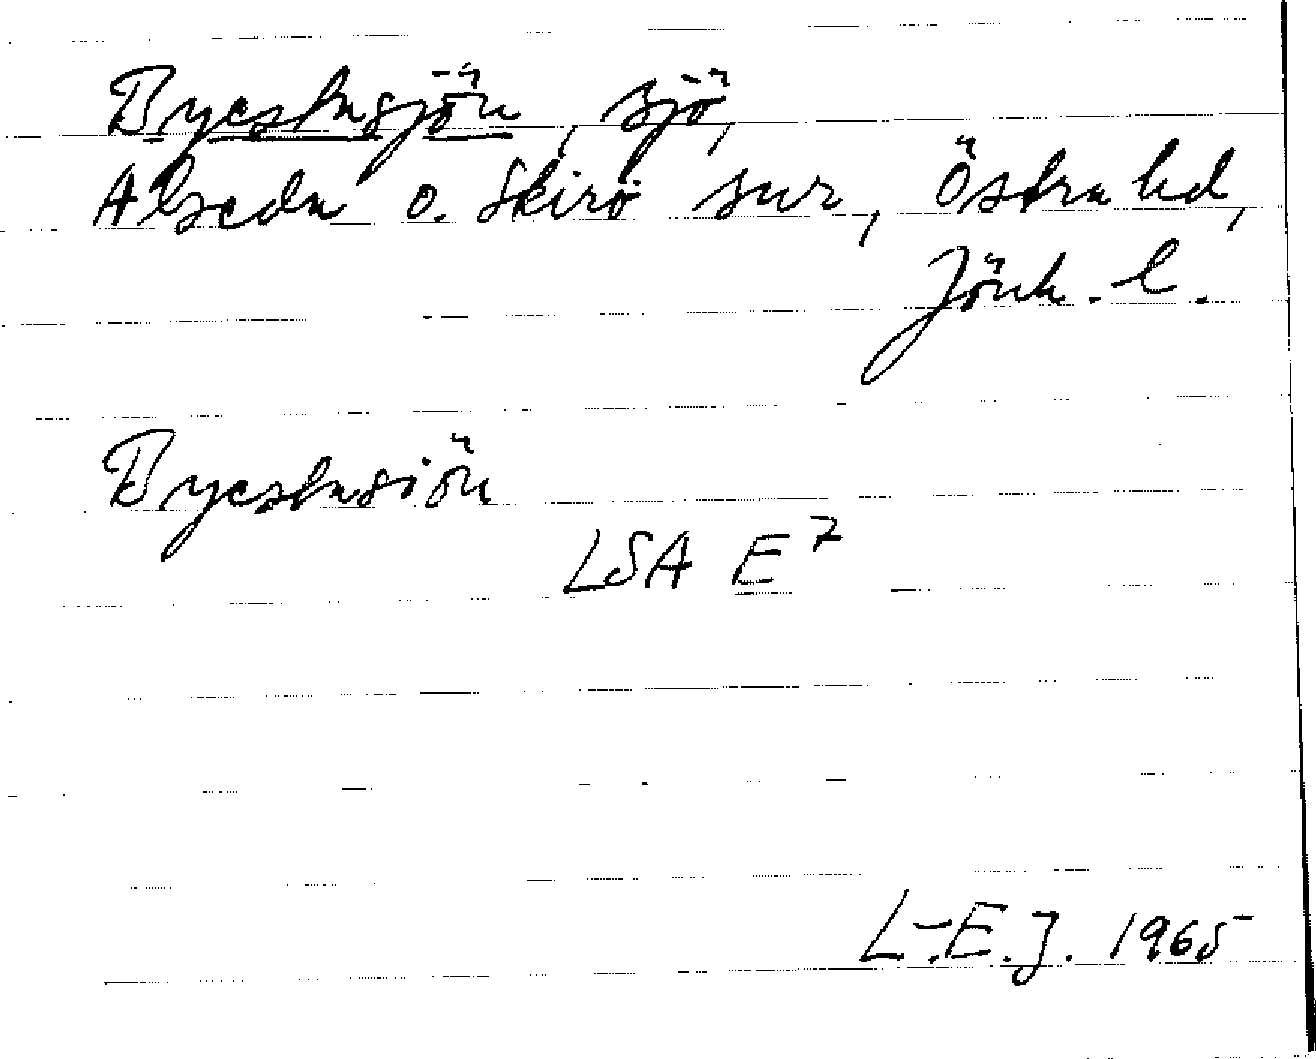 Byestasjön, sjö,
Alseda o. Skirö snr, Östra hd,
Jönk. l.
Byestasiön
LSA E7
L-E.J. 1965